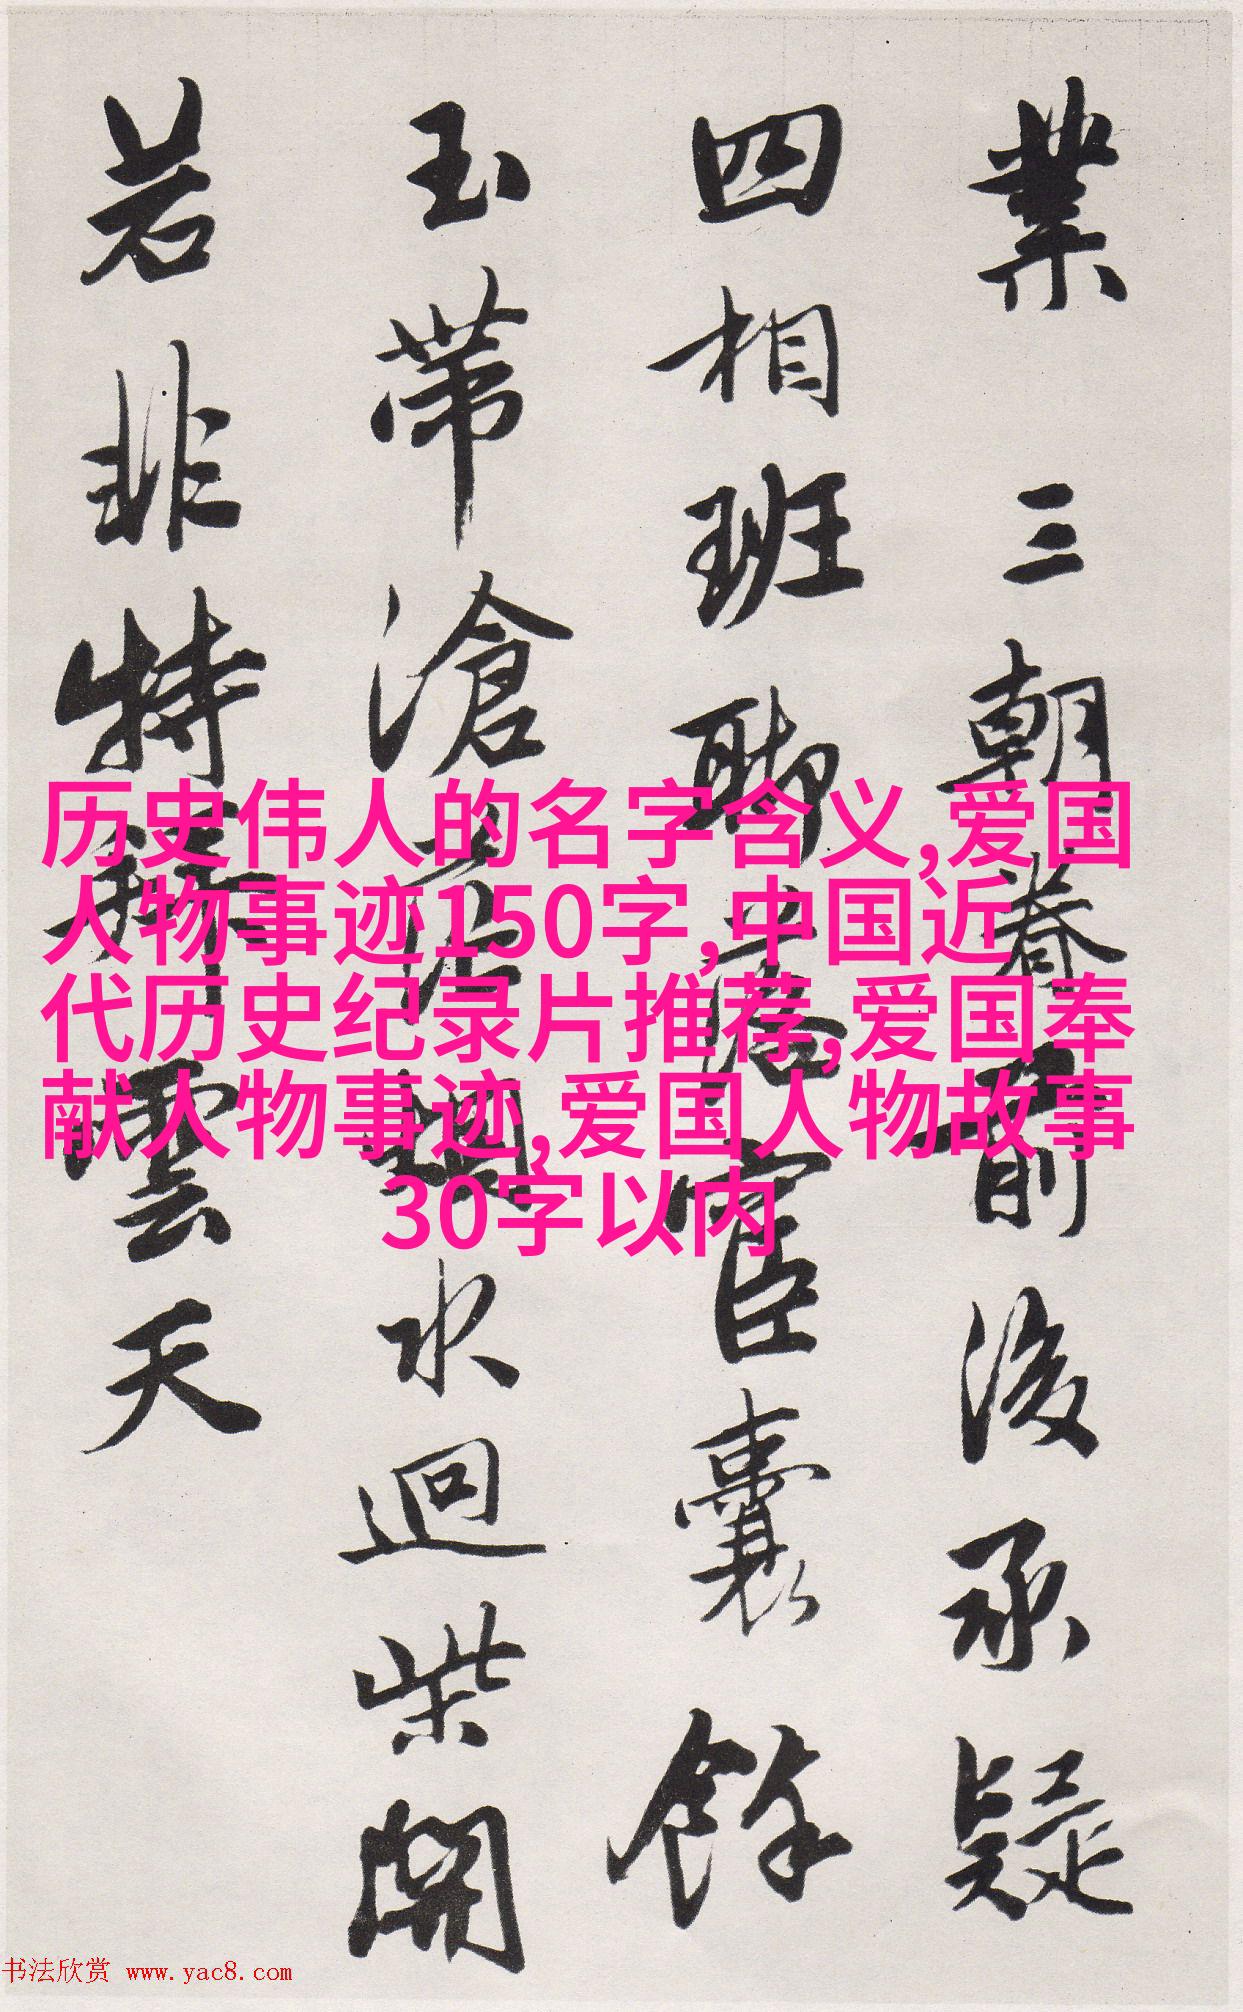 業 三朝眷前後承疑
四相班聯落宦囊餘
玉帶滄水迥柴開
若非特雲天
历史伟人的名字含义,爱国
人物事迹150字,中国近
代历史纪录片推荐,爱国奉
献人物事迹,爱国人物故事
30字以内
书法欣赏 www.yac8.com